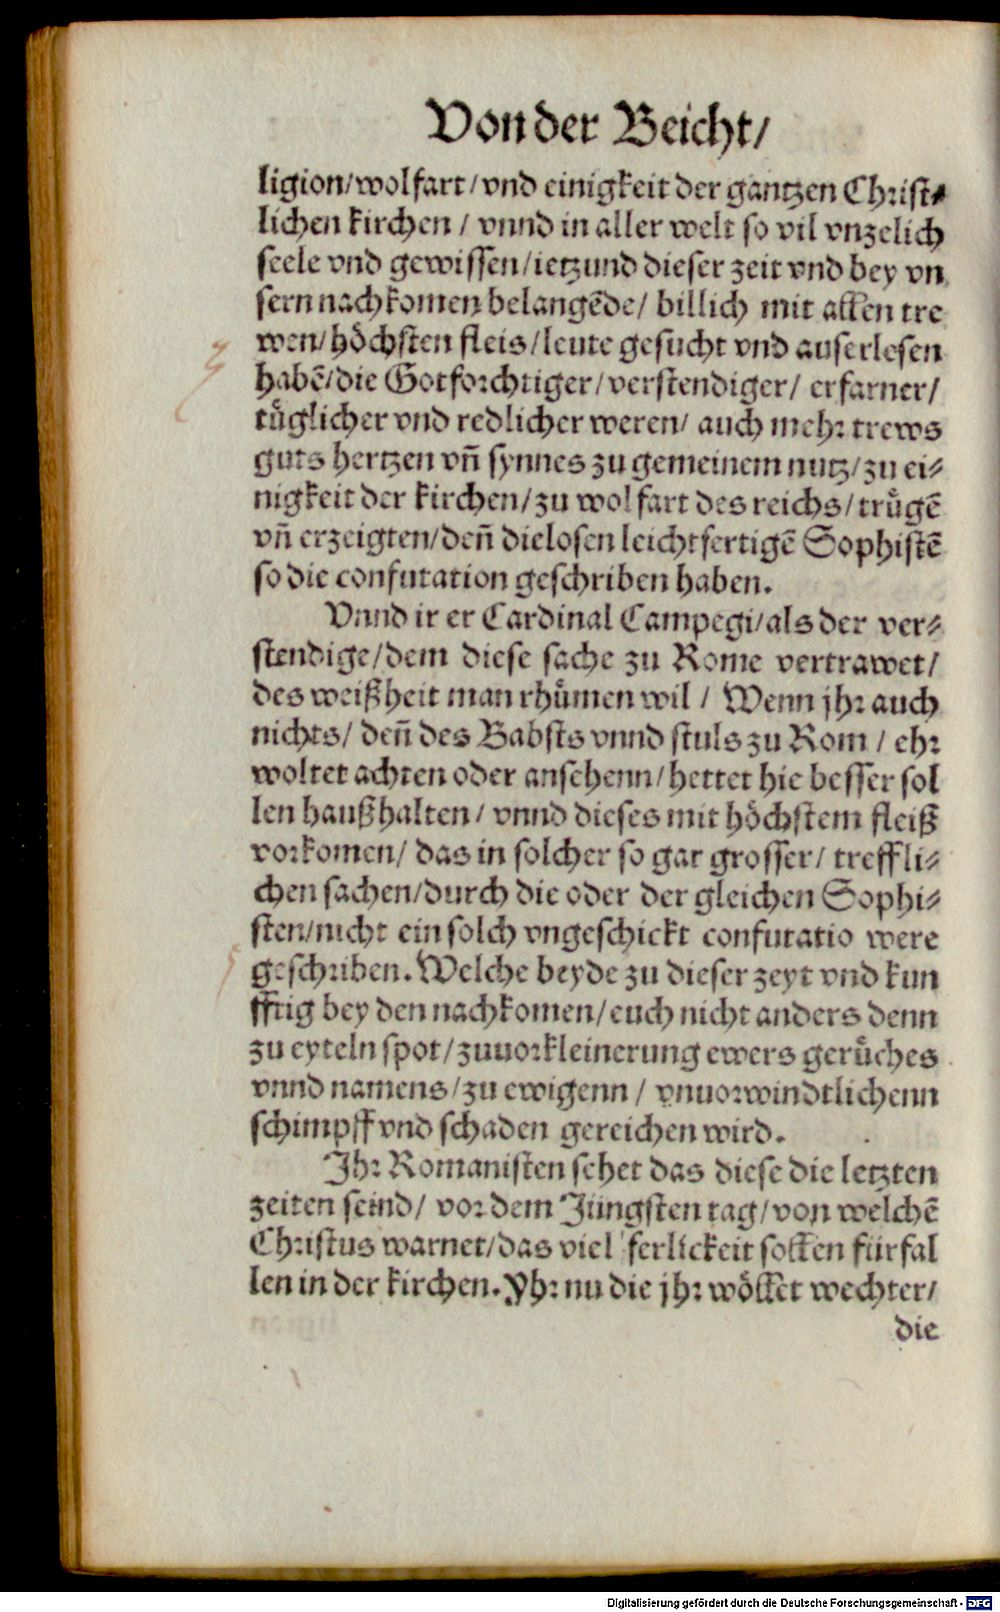 Von der Beicht/
ligion/wolfart/vnd einigkeit der gantzen Christ⸗
lichen kirchen / vnnd in aller welt so vil vnzelich
seele vnd gewissen/ietzund dieser zeit vnd bey vn
sern nachkomen belangēde/ billich mit allen tre
wen/höchsten fleis/leute gesucht vnd auserlesen
habē/die Gotforchtiger/verstendiger/ erfarner/
tüglicher vnd redlicher weren/ auch mehr trews
guts hertzen vñ synnes zu gemeinem nutz/zu ei⸗
nigkeit der kirchen/zu wolfart des reichs/trügē
vñ erzeigten/deñ dielosen leichtfertigē Sophistē
so die confutation geschriben haben.
Vnnd ir er Cardinal Campegi/als der ver⸗
stendige/dem diese sache zu Rome vertrawet/
des weißheit man rhümen wil / Wenn jhr auch
nichts/ deñ des Babsts vnnd stuls zu Rom / ehr
woltet achten oder ansehenn/hettet hie besser sol
len haußhalten/ vnnd dieses mit höchstem fleiß
vorkomen/ das in solcher so gar grosser/ treffli⸗
chen sachen/durch die oder der gleichen Sophi⸗
sten/nicht ein solch vngeschickt confutatio were
geschriben. Welche beyde zu dieser zeyt vnd kun
fftig bey den nachkomen/euch nicht anders denn
zu eyteln spot/zuuorkleinerung ewers gerüches
vnnd namens/zu ewigenn / vnuorwindtlichenn
schimpff vnd schaden gereichen wird.
Jhr Romanisten sehet das diese die letzten
zeiten seind/ vor dem Jüngsten tag/von welchē
Christus warnet/das viel ferlickeit sollen fürfal
len in der kirchen. Yhr nu die jhr wöllet wechter/
die
Digitalisierung gefördert durch die Deutsche Forschungsgemeinschaft - DFG